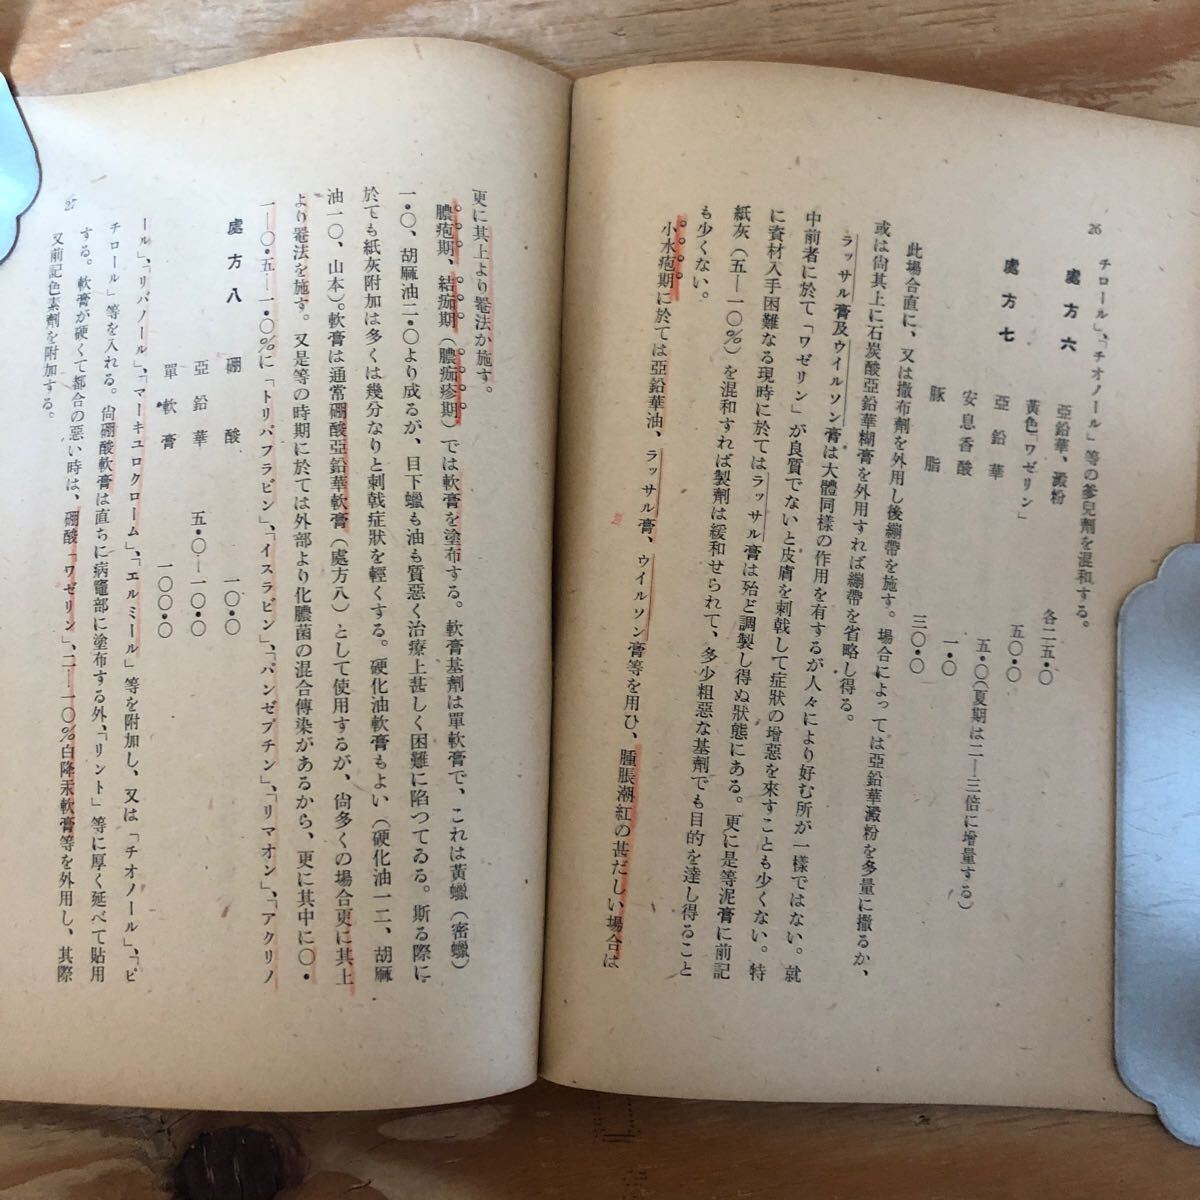 26
チロール」、「チオノール」等の爹兒劑を混和する。
處方六
亞鉛華、澱粉 各二五・〇
黃色「ワゼリン」 五〇・〇
處方七
亞鉛華 五・〇(夏期は二—三倍に增量する)
安息香酸 一・〇
豚脂 三〇・〇
此場合直に、又は撒布劑を外用し後繃帶を施す。場合によっては亞鉛華澱粉を多量に撒るか、
或は尙其上に石炭酸亞鉛華糊膏を外用すれば繃帶を省略し得る。
ラッサル膏及ウイルソン膏は大體同樣の作用を有するが人々により好む所が一樣ではない。就
中前者に於て「ワゼリン」が良質でないと皮膚を刺戟して症狀の增惡を來すことも少くない。特
に資材入手困難なる現時に於てはラッサル膏は殆ど調製し得ぬ狀態にある。更に是等泥膏に前記
紙灰(五—一〇%)を混和すれば製劑は緩和せられて、多少粗惡な基劑でも目的を達し得ること
も少くない。
小水疱期に於ては亞鉛華油、ラッサル膏、ウイルソン膏等を用ひ、腫脹潮紅の甚だしい場合は
更に其上より罨法か施す。
膿疱期、結痂期(膿痂疹期)では軟膏を塗布する。軟膏基劑は單軟膏で、これは黃蠟(密蠟)
一・〇、胡麻油二・〇より成るが、目下蠟も油も質惡く治療上甚しく困難に陷つてゐる。斯る際に
於ても紙灰附加は多くは幾分なりと刺戟症狀を輕くする。硬化油軟膏もよい(硬化油一二、胡麻
油一〇、山本)。軟膏は通常硼酸亞鉛華軟膏(處方八)として使用するが、尙多くの場合更に其上
より罨法を施す。又是等の時期に於ては外部より化膿菌の混合傳染があるから、更に其中に〇・
一—〇・五—一・〇%に「トリパフラビン」、「イスラビン」、「パンゼプチン」、「リマオン」、「アクリノ
處方八
硼酸 一〇・〇
亞鉛華 五・〇—一〇・〇
單軟膏 一〇〇・〇
ール」、「リバノール」、「マーキユロクローム」、「エルミール」等を附加し、又は「チオノール」、「ピ
チロール」等を入れる。尙硼酸軟膏は直ちに病竈部に塗布する外、「リント」等に厚く延べて貼用
する。軟膏が硬くて都合の惡い時は、硼酸「ワゼリン」、二—一〇%白降汞軟膏等を外用し、其際
又前記色素劑を附加する。
27